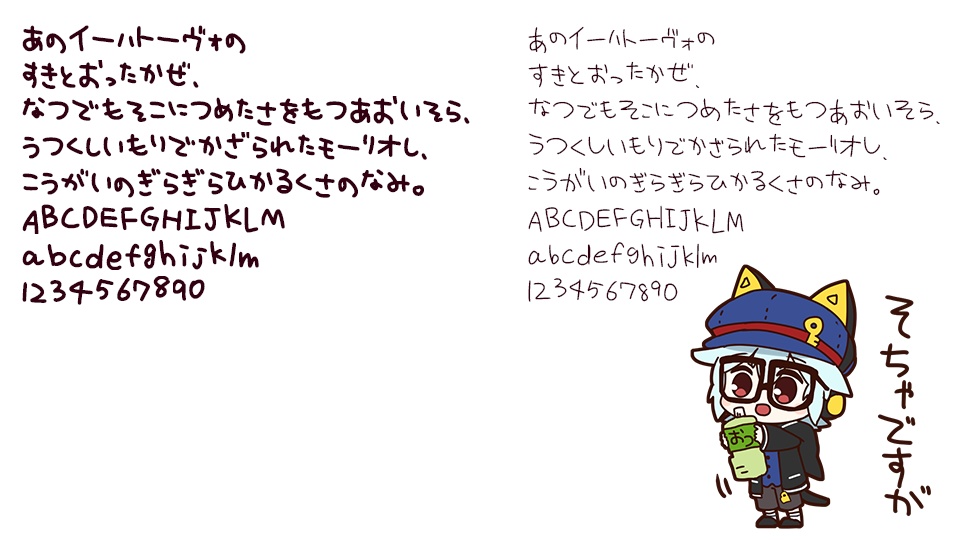 あのイーハトーヴォの
すきとおったかぜ、
なつでもそこにつめたさをもつあおいそら、
うつくしいもりでかざられたモーリオし、
こうがいのぎらぎらひかるくさのなみ。
ABCDEFGHIJKLM
abcdefghijklm
1234567890
あのイーハトーヴォの
すきとおったかぜ、
なつでもそこにつめたさをもつあおいそら、
うつくしいもりでかざられたモーリオし、
こうがいのぎらぎらひかるくさのなみ。
ABCDEFGHIJKLM
abcdefghijklm
1234567890
そちゃですが
おっ